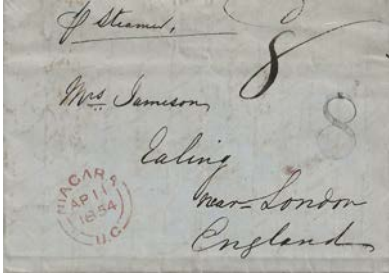 p Steamer,
8
Mrs Jameson
8
Ealing
near London
England
NIAGARA
AP 11
1854
U.C